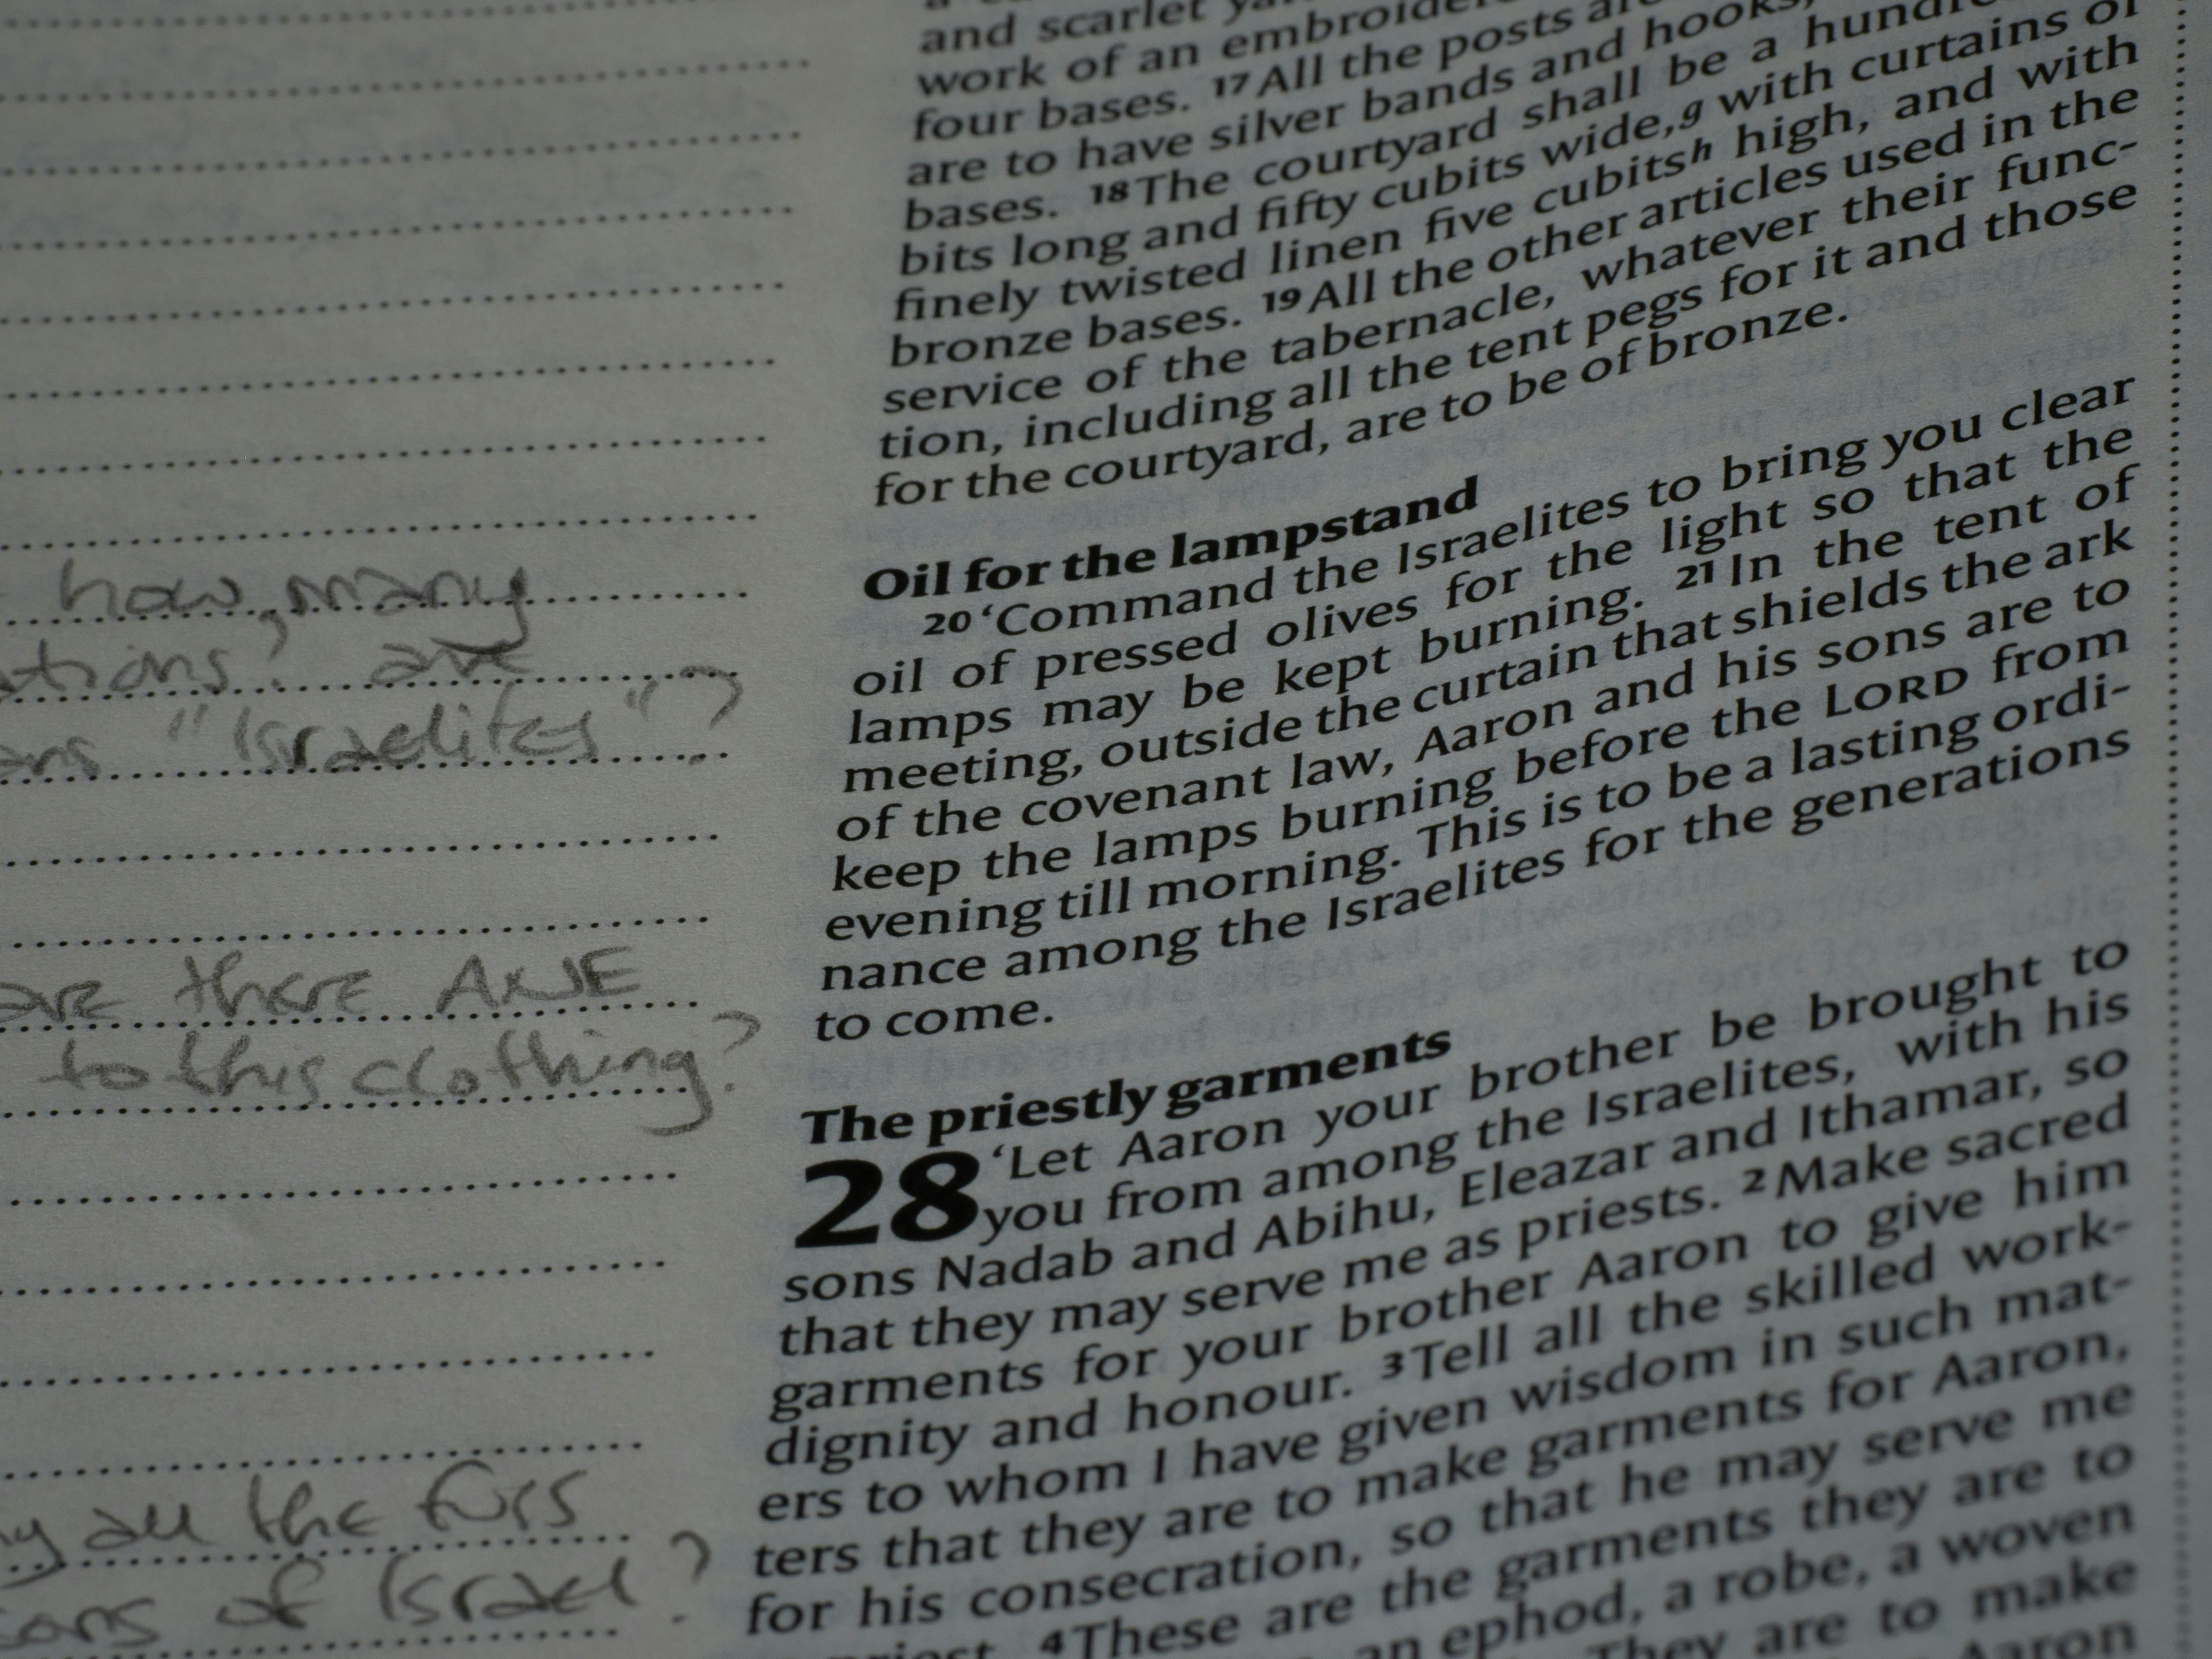 how many
are
"Israelites"?
are there
to this clothing?
all the
of Israel?
and scarlet
work of an
four bases. 17 All the posts
are to have silver bands and hooks,
bases. 18 The courtyard shall be a
bits long and fifty cubits wide,g with curtains of
finely twisted linen five cubitsh high, and with
bronze bases. 19 All the other articles used in the
service of the tabernacle, whatever their func-
tion, including all the tent pegs for it and those
for the courtyard, are to be of bronze.
Oil for the lampstand
20 ‘Command the Israelites to bring you clear
oil of pressed olives for the light so that the
lamps may be kept burning. 21 In the tent of
meeting, outside the curtain that shields the ark
of the covenant law, Aaron and his sons are to
keep the lamps burning before the LORD from
evening till morning. This is to be a lasting ordi-
nance among the Israelites for the generations
to come.
The priestly garments
28 ‘Let Aaron your brother be brought to
you from among the Israelites, with his
sons Nadab and Abihu, Eleazar and Ithamar, so
that they may serve me as priests. 2 Make sacred
garments for your brother Aaron to give him
dignity and honour. 3 Tell all the skilled work-
ers to whom I have given wisdom in such mat-
ters that they are to make garments for Aaron,
for his consecration, so that he may serve me
priest. 4 These are the garments they are to
an ephod, a robe, a woven
They are to make
Aaron